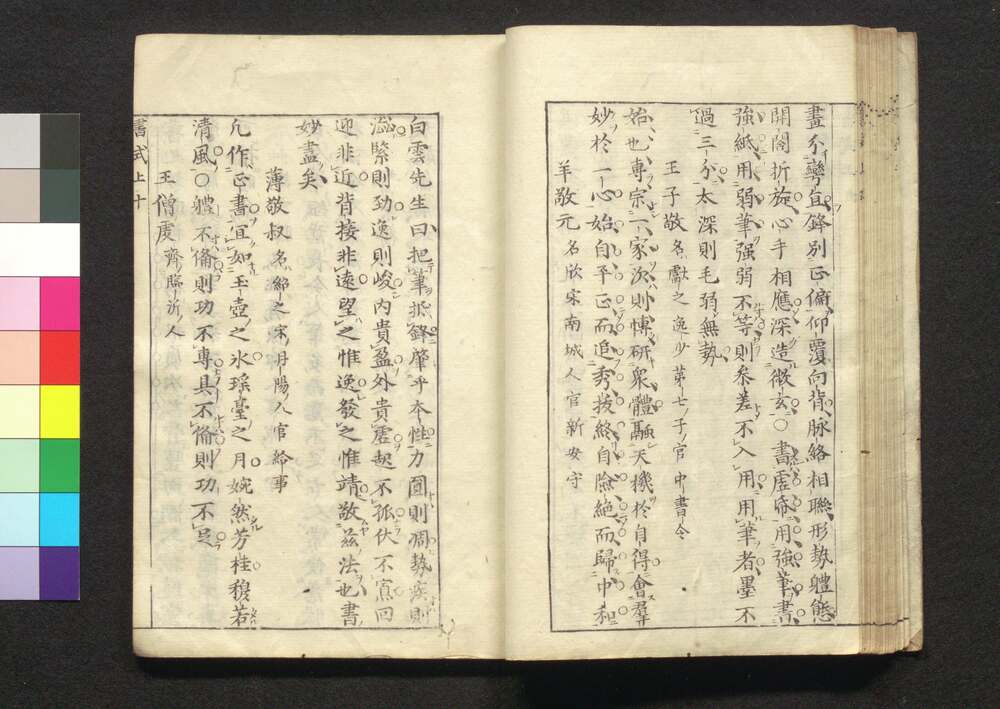 畫不彎直鋒別正偏仰覆向背脉絡相聯形勢軆態
開闔折旋心手相應深造微玄〇書虛帋用強筆書
強紙用弱筆强弱不等則參差不入用用筆者墨不
過三分太深則毛弱無勢
王子敬名獻之逸少第七子官中書令
始也專宗一家次則慱研衆體融天機於自得會羣
妙於一心始自平正而追秀拔終自險絶而歸中和
羊敬元名欣宋南城人官新安守
白雲先生曰把筆抵鋒肇乎本性力圓則凋勢疾則
澁緊則勁逸則峻内貴盈外貴虛起不孤伏不寡回
迎非近背接非遠望之惟逸發之惟靖敬茲法也書
妙盡矣
薄敬叔名紹之宋丹陽人官給事
凡作正書宜如玉壺之氷瑤臺之月婉然芳桂穆若
清風〇軆不偹則功不專具不偹則功不足
王僧虔齊臨沂人
書式上十